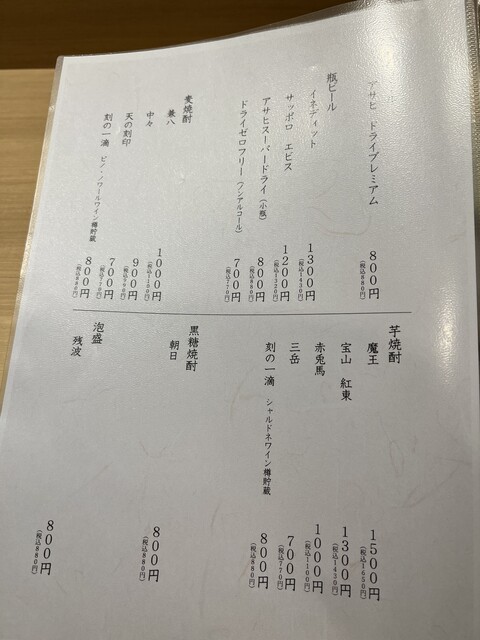 アサヒ ドライプレミアム 800円(税込880円)
瓶ビール
イネディット 1300円(税込1430円)
サッポロ エビス 1200円(税込1320円)
アサヒスーパードライ(小瓶) 800円(税込880円)
ドライゼロフリー(ノンアルコール) 700円(税込770円)
麦焼酎
兼八 1000円(税込1100円)
中々 900円(税込990円)
天の刻印 700円(税込770円)
刻の一滴 ピノ・ノワールワイン樽貯蔵 800円(税込880円)
芋焼酎
魔王 1500円(税込1650円)
宝山 紅東 1300円(税込1430円)
赤兎馬 1000円(税込1100円)
三岳 700円(税込770円)
刻の一滴 シャルドネワイン樽貯蔵 800円(税込880円)
黒糖焼酎
朝日 800円(税込880円)
泡盛
残波 800円(税込880円)